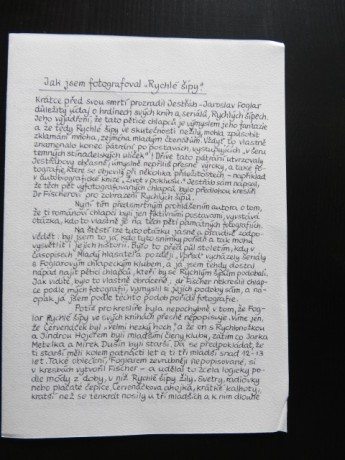 Jak jsem fotografoval „Rychlé šípy“
Krátce před svou smrtí prozradil Jestřáb-Jaroslav Foglar
důležitý údaj o hrdinech svých knih a seriálů, Rychlých šípech.
Jeho vyjádření, že tato pětice chlapců je výmyslem jeho fantazie
a že tedy Rychlé šípy ve skutečnosti nežily, mohlo způsobit
zklamání mnoha, zejména mladým čtenářům. Vždyť to vlastně
znamenalo konec pátrání po postavách, vystupujících „v šeru
temných stínadelských uliček“! Dříve tato pátrání utvrzovaly
Jestřábovy občasné, úmyslně nepříliš přesné výroky, a také fo-
tografie, které se objevily při několika příležitostech - například
v autobiografické knize „Život v poklusu“. Jestřáb sám nepsal,
že těch pět vyfotografovaných chlapců, bylo předlohou kreslíři
Dr Fischerovi pro zobrazení Rychlých šípů.
Nyní, těmi předsmrtnými prohlášením autora, o tom,
že ti románoví chlapci byli jen fiktivními postavami, vyvstává
otázka, kdo to vlastně je na těch pěti památných fotografiích.
Na štěstí lze tuto otázku jasně a pravdivě zodpo-
vědět: byl jsem to já, kdo tyto snímky pořídil a tak mohu
vysvětlit i jejich historii. Bylo to před půl stoletím, kdy v
časopisech Mladý hlasatel a později „Vpřed“ vycházely seriály
s Foglarovým chlapeckým klubem, a já jsem tehdy dostal
nápad najít pětici chlapců, kteří by se Rychlým šípům podobali.
Jak vidíte, bylo to vlastně obráceně: dr Fischer nekreslil chlap-
ce podle mých fotografií, vymyslil si jejich podoby sám, a na-
opak já jsem podle těchto podob pořídil fotografie.
Potíž pro kreslíře byla nepochybně v tom, že Fog-
lar Rychlé šípy ve svých knihách přesně nepopisuje. Víme jen,
že Červenáček byl „velmi hezký hoch“, a že on s Rychlonožkou
a Jindrou Hojerem byli mladšími členy klubu, zatím co Jarka
Metelka a Mirek Dušín byli starší. Dá se předpokládat, že
ti starší měli kolem patnácti let a ti tři mladší snad 12-13
let. Také oblečení, Foglarem zevrubněji nepopisované, si
v kresbách vytvořil Fischer - a udělal to zcela logicky po-
dle módy z doby, v níž Rychlé šípy žily. Svetry, rádiovky
nebo placaté čepice, Červenáčkova ahojka, krátké kalhoty,
kratší než se tenkrát nosily u tří mladších a k nim dlouhé